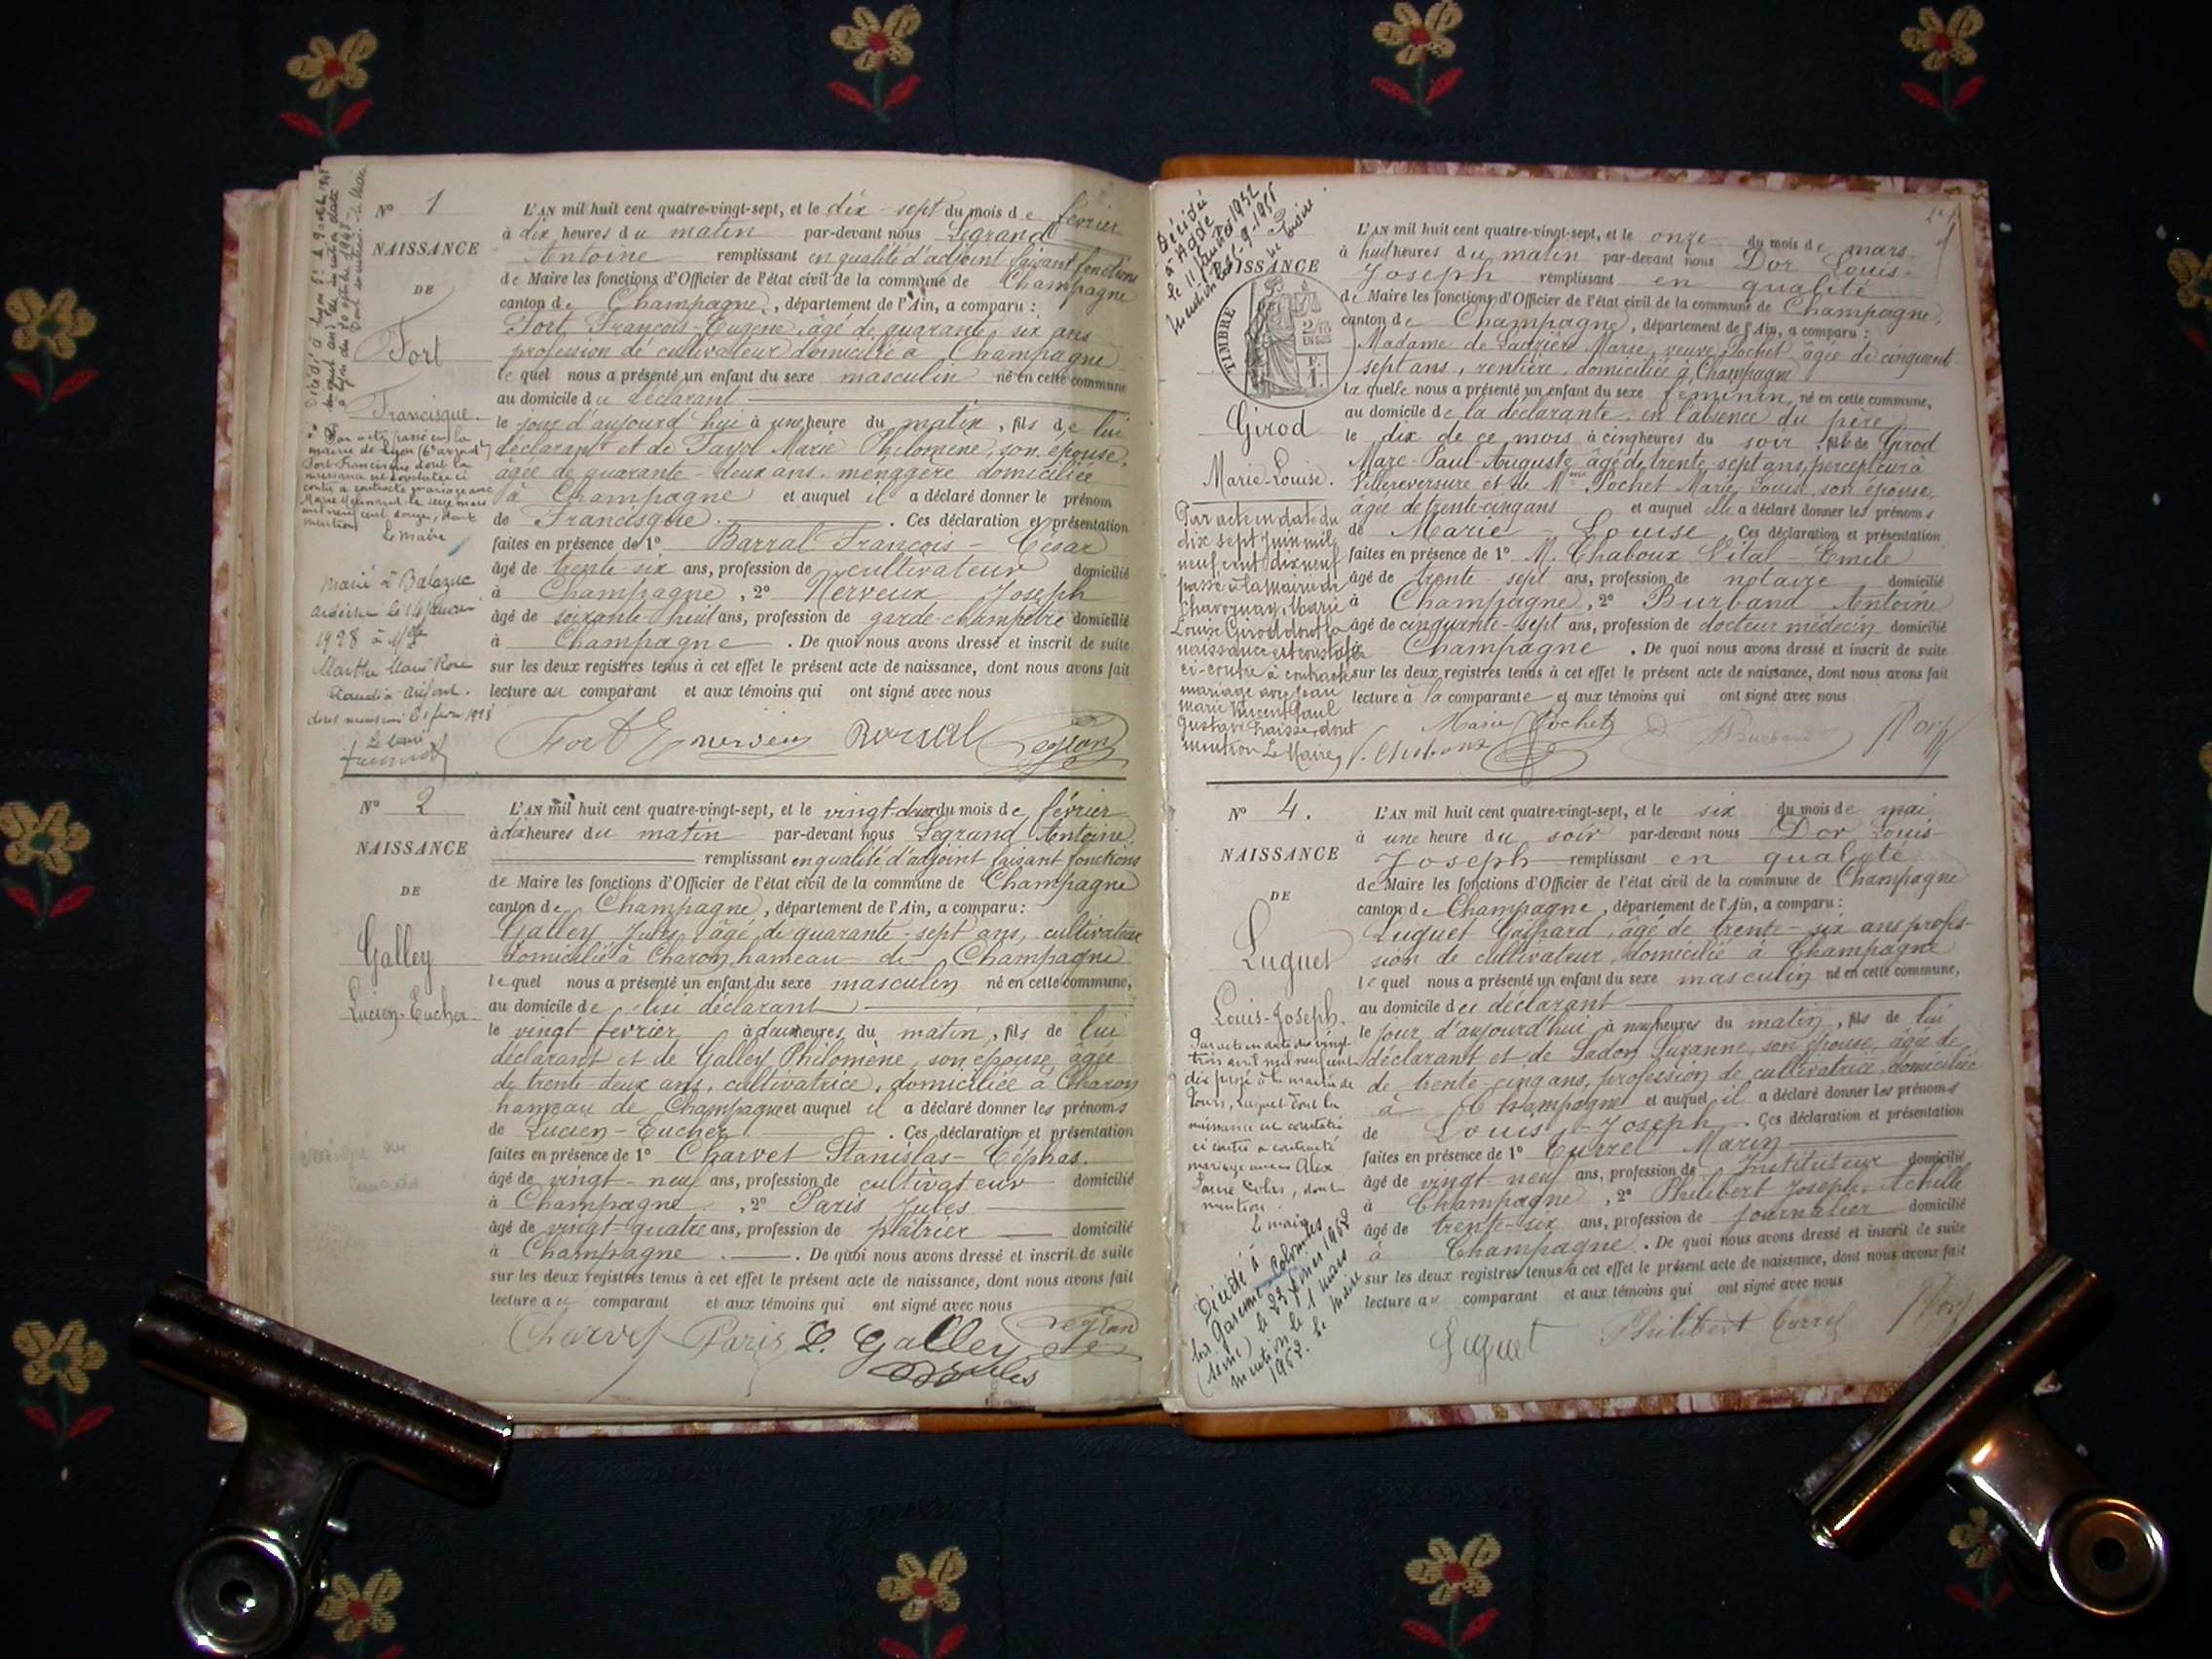 N° 1
NAISSANCE
DE
Fort
Francisque
L'AN mil huit cent quatre-vingt-sept, et le dix-sept du mois de février
à dix heures du matin par-devant nous Legrand
Antoine remplissant en qualité d'adjoint faisant fonctions
de Maire les fonctions d'Officier de l'état civil de la commune de Champagne
canton de Champagne, département de l'Ain, a comparu :
Fort, François-Eugène, âgé de quarante-six ans
profession de cultivateur domicilié à Champagne
lequel nous a présenté un enfant du sexe masculin né en cette commune
au domicile du déclarant
le jour d'aujourd'hui à une heure du matin, fils de lui
déclarant et de Fayol Marie Philomène, son épouse,
âgée de quarante-deux ans, menagère domiciliée
à Champagne et auquel il a déclaré donner le prénom
de Francisque. Ces déclaration et présentation
faites en présence de 1° Barral François-César
âgé de trente-six ans, profession de cultivateur domicilié
à Champagne, 2° Nerveux Joseph
âgé de soixante-huit ans, profession de garde-champêtre domicilié
à Champagne. De quoi nous avons dressé et inscrit de suite
sur les deux registres tenus à cet effet le présent acte de naissance, dont nous avons fait
lecture au comparant et aux témoins qui ont signé avec nous
Fort
par acte passé en la
mairie de Lyon (6e arrondt)
Fort Francisque dont la
naissance est constatée ci
contre a contracté mariage avec
mil neuf cent douze, dont
mention
Le maire
Marié à Balazuc
1928 à Mlle
Le maire
N° 2
NAISSANCE
DE
Galley
Lucien-Eucher
L'AN mil huit cent quatre-vingt-sept, et le vingt-deux du mois de février
à dix heures du matin par-devant nous Legrand Antoine
remplissant en qualité d'adjoint faisant fonctions
de Maire les fonctions d'Officier de l'état civil de la commune de Champagne
canton de Champagne, département de l'Ain, a comparu :
Galley Jules, âgé de quarante-sept ans, cultivateur
domicilié à Charon, hameau de Champagne
lequel nous a présenté un enfant du sexe masculin né en cette commune,
au domicile de lui déclarant
le vingt février à deux heures du matin, fils de lui
déclarant et de Galley Philomène, son épouse, âgée
de trente-deux ans, cultivatrice, domiciliée à Charon
hameau de Champagne et auquel il a déclaré donner les prénoms
de Lucien-Eucher. Ces déclaration et présentation
faites en présence de 1° Charvet Stanislas-Céphas.
âgé de vingt-neuf ans, profession de cultivateur domicilié
à Champagne, 2° Paris Jules
âgé de vingt-quatre ans, profession de plâtrier domicilié
à Champagne. De quoi nous avons dressé et inscrit de suite
sur les deux registres tenus à cet effet le présent acte de naissance, dont nous avons fait
lecture au comparant et aux témoins qui ont signé avec nous
Charvet Paris Galley
Jules
Décédé
à Agde
TIMBRE
NAISSANCE
Girod
Marie-Louise.
L'AN mil huit cent quatre-vingt-sept, et le onze du mois de mars
à huit heures du matin par-devant nous Dor Louis-
Joseph remplissant en qualité
de Maire les fonctions d'Officier de l'état civil de la commune de Champagne,
canton de Champagne, département de l'Ain, a comparu :
Madame de Ladzière Marie, veuve Pochet, âgée de cinquante
sept ans, rentière, domiciliée à Champagne
laquelle nous a présenté un enfant du sexe féminin, né en cette commune,
au domicile de la déclarante, en l'absence du père,
le dix de ce mois à cinq heures du soir, fille de Girod
Marc-Paul-Auguste, âgé de trente-sept ans, percepteur à
Villereversure et de Mme Pochet Marie-Louise, son épouse,
âgée de trente-cinq ans et auquel elle a déclaré donner les prénoms
de Marie-Louise Ces déclaration et présentation
faites en présence de 1° M. Chaboux Vital-Emile
âgé de trente-sept ans, profession de notaire domicilié
à Champagne, 2° Burband Antoine
âgé de cinquante-sept ans, profession de docteur médecin domicilié
à Champagne. De quoi nous avons dressé et inscrit de suite
sur les deux registres tenus à cet effet le présent acte de naissance, dont nous avons fait
lecture à la comparante et aux témoins qui ont signé avec nous
Marie Pochet
V. Chaboux Burband Dor
Par acte en date du
dix sept juin mil
neuf cent dix neuf
passé à la Mairie de
Chavornay, Marie
Louise Girod dont la
naissance est constatée
ci-contre a contracté
mariage avec Jean
Marie Vincent Paul
Gustave dont
mention Le Maire,
N° 4.
NAISSANCE
DE
Luguet
Louis-Joseph.
L'AN mil huit cent quatre-vingt-sept, et le six du mois de mai
à une heure du soir par-devant nous Dor Louis-
Joseph remplissant en qualité
de Maire les fonctions d'Officier de l'état civil de la commune de Champagne
canton de Champagne, département de l'Ain, a comparu :
Luguet Gaspard, âgé de trente-six ans profes-
sion de cultivateur, domicilié à Champagne
lequel nous a présenté un enfant du sexe masculin né en cette commune,
au domicile du déclarant
le jour d'aujourd'hui à neuf heures du matin, fils de lui
déclarant et de Sadon Suzanne, son épouse, âgée de
de trente-cinq ans, profession de cultivatrice, domiciliée
à Champagne et auquel il a déclaré donner les prénoms
de Louis-Joseph. Ces déclaration et présentation
faites en présence de 1° Currel Marin
âgé de vingt-neuf ans, profession de Instituteur domicilié
à Champagne, 2° Philibert Joseph-Achille
âgé de trente-six ans, profession de journalier domicilié
à Champagne. De quoi nous avons dressé et inscrit de suite
sur les deux registres tenus à cet effet le présent acte de naissance, dont nous avons fait
lecture au comparant et aux témoins qui ont signé avec nous
Luguet Philibert Dor
Par acte en date du vingt
trois avril mil neuf cent
dix passé à la mairie de
Luguet dont la
naissance est constatée
ci contre a contracté
mariage avec Alix
dont
mention
Le maire
Décédé à
la Garenne-Colombes
(Seine) le 23 février 1962
mention le 1 mars
1962. Le Maire